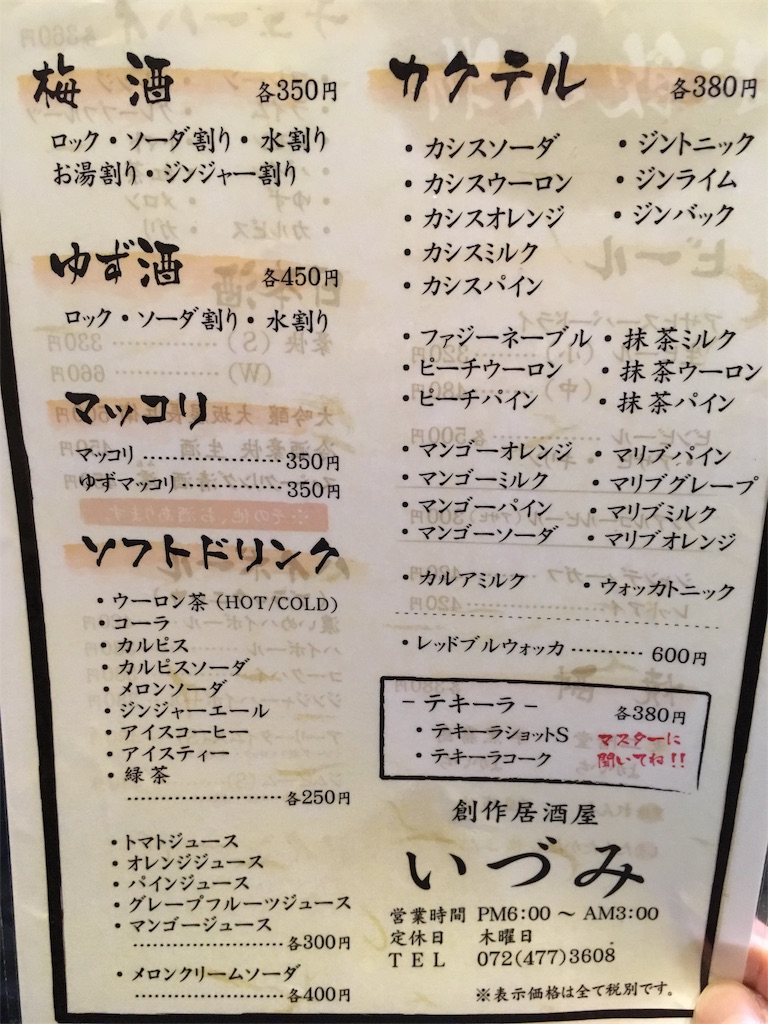 梅酒 各350円
ロック・ソーダ割り・水割り
お湯割り・ジンジャー割り
ゆず酒 各450円
ロック・ソーダ割り・水割り
マッコリ
マッコリ ……………… 350円
ゆずマッコリ ………… 350円
ソフトドリンク
・ウーロン茶 (HOT/COLD)
・コーラ
・カルピス
・カルピスソーダ
・メロンソーダ
・ジンジャーエール
・アイスコーヒー
・アイスティー
・緑茶
…………………… 各250円
・トマトジュース
・オレンジジュース
・パインジュース
・グレープフルーツジュース
・マンゴージュース
…………………… 各300円
・メロンクリームソーダ
…………………… 各400円
カクテル 各380円
・カシスソーダ ・ジントニック
・カシスウーロン ・ジンライム
・カシスオレンジ ・ジンバック
・カシスミルク
・カシスパイン
・ファジーネーブル ・抹茶ミルク
・ピーチウーロン ・抹茶ウーロン
・ピーチパイン ・抹茶パイン
・マンゴーオレンジ ・マリブパイン
・マンゴーミルク ・マリブグレープ
・マンゴーパイン ・マリブミルク
・マンゴーソーダ ・マリブオレンジ
・カルアミルク ・ウォッカトニック
・レッドブルウォッカ ………… 600円
– テキーラ – 各380円
・テキーラショットS マスターに
・テキーラコーク 聞いてね!!
創作居酒屋
いづみ
営業時間 PM6:00 ～ AM3:00
定休日 木曜日
TEL 072(477)3608
※表示価格は全て税別です。